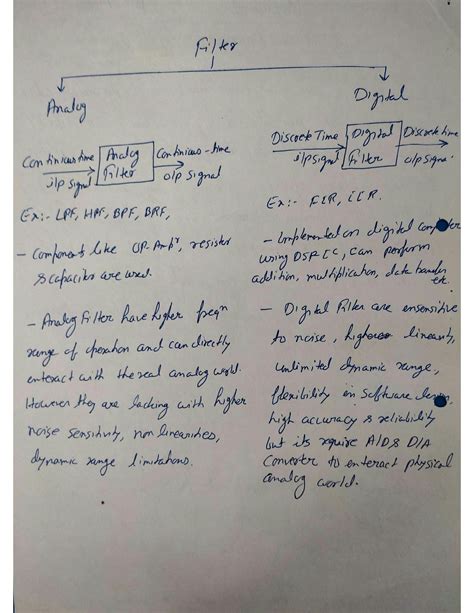 Filter
Analog
Continious time
i/p signal
Analog
Filter
Continious-time
o/p signal
Ex:- LPF, HPF, BPF, BRF,
- Components like OP-Amp, resistor
& capacitor are used.
- Analog Filter have higher freqn
range of operation and can directly
enteract with the real analog world.
However they are lacking with higher
noise sensitivity, non linearities,
dynamic range limitations.
Digital
Discrete Time
i/p signal
Digital
Filter
Discrete time
o/p signal
Ex:- FIR, IIR.
- Implemented on digital computer
using DSP IC, can perform
addition, multiplication, data transfer
etc.
- Digital Filter are ensensitive
to noise, higher linearity,
unlimited dynamic range,
flexibility in software
high accuracy & reliability
but its require A/D & D/A
Converter to enteract physical
analog world.